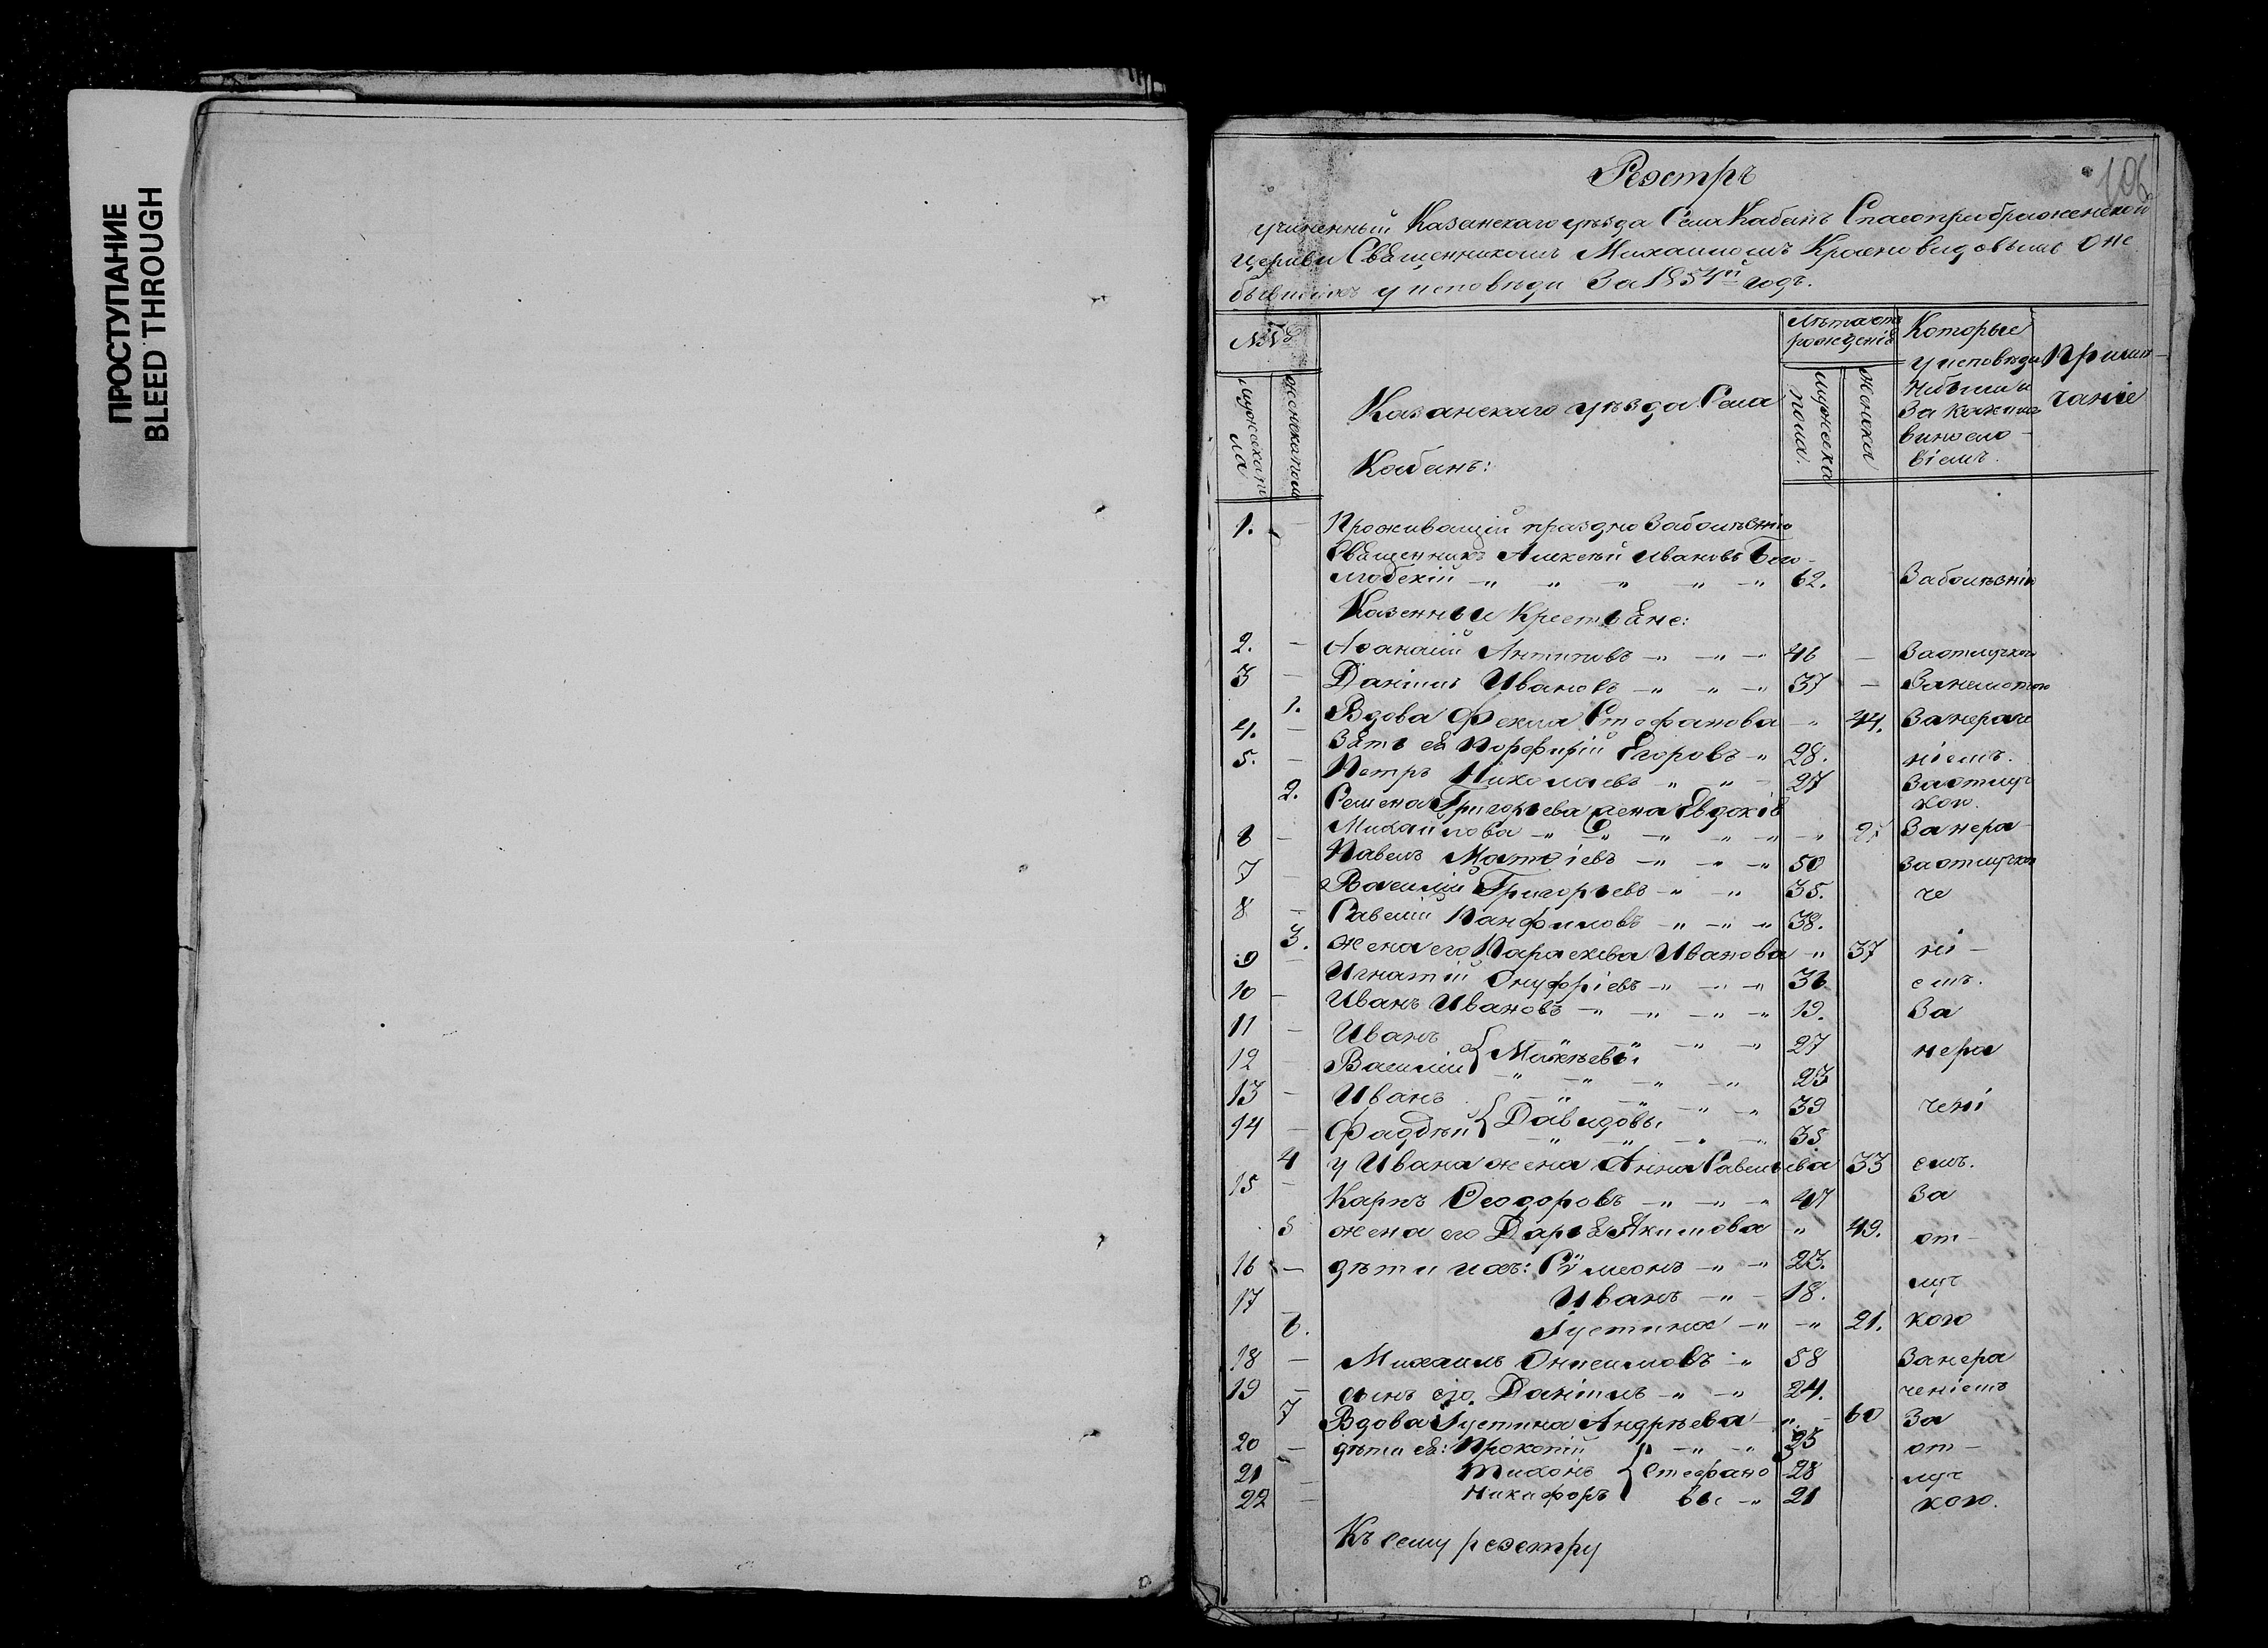 ПРОСТУПАНИЕ
BLEED THROUGH
106
Реэстръ
учиненный Казанскаго уѣзда Села Кабанъ Спасопреображенской
церкви Священникомъ Михаиломъ Красновидовымъ о не
бывшихъ у исповѣди За 1854й годъ.
№№
мужеска по
ла
женска пола
Казанскаго уѣзда Села
Кабанъ:
Лѣта отъ
рожденія
мужеска
пола.
женска
Которые
у исповѣди
небыли и
За какимъ
винсло-
віемъ.
Примѣ-
чаніе
1. — Проживающій праздно За болѣзнію
Священникъ Алексѣй Ивановъ Бого-
любскій — „ „ „ „ „ 62. За болѣзнію
Казенныи Крестьяне:
2. — Аѳанасій Антиповъ — „ — „ — „ 46 — За отлучкою
3 — Даніилъ Ивановъ — „ — „ — „ 37 —
1. Вдова Фекла Стефанова — „ 44. За нераче
4. — Зять ея Порфирій Егоровъ — „ 28. ніемъ.
5. — Петръ Николаевъ — „ „ — 27 За отлуч
2. Семена Григорьева жена Евдокія кою.
Михайлова — „ — „ — „ — „ — „ За нера-
6 — Павелъ Матѳіевъ — „ — „ — „ 50 За отлучкою
7 — Василій Григорьевъ — „ — „ 35. че
8 — Савелій Панфиловъ — „ — „ — „ 38.
3. жена его Параскева Иванова „ 37 ні —
9 — Игнатій Онуфріевъ — „ — „ — „ 36 емъ.
10 — Иванъ Ивановъ — „ — „ — „ — „ 19. За
11 — Иванъ — „ — „ — „ — „ 27 нера
12 Василій { — „ — „ — „ — „ 23
13 — Иванъ — „ — „ — „ — „ 39 чені
14 — Фаддѣй { Давидовы — „ — „ — „ — „ 35
4 у Ивана жена Анна Савельева 33 емъ.
15 — Карпъ Ѳеодоровъ — „ — „ — „ 47 За
5 жена его Дарья Якимова „ 49. от —
16 — дѣти ихъ: Сѵмеонъ — „ — „ 23. луч
17 Иванъ — „ — 18.
6. Іустина — „ — „ 21. кою
18 — Михаилъ Онисимовъ — „ 58 За нера
19 — сынъ его Даніилъ — „ — „ 24. ченіемъ
7 Вдова Іустина Андрѣева — „ — 60 За
20 — дѣти ея: Прокопій — „ — „ от —
21 — Тихонъ { Стефано 28 луч
22 — Никифоръ вы — „ 21 кою.
Къ сему реэстру